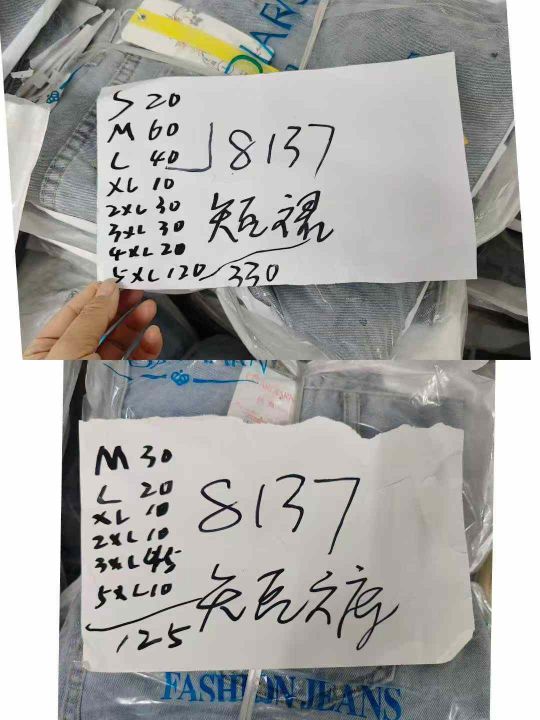 S 20
M 60
L 40
XL 10
2XL 30
3XL 30
4XL 20
5XL 120
330
J8137
短裙
M 30
L 20
XL 10
2XL 10
3XL 45
5XL 10
125
8137
短
FASHION JEANS